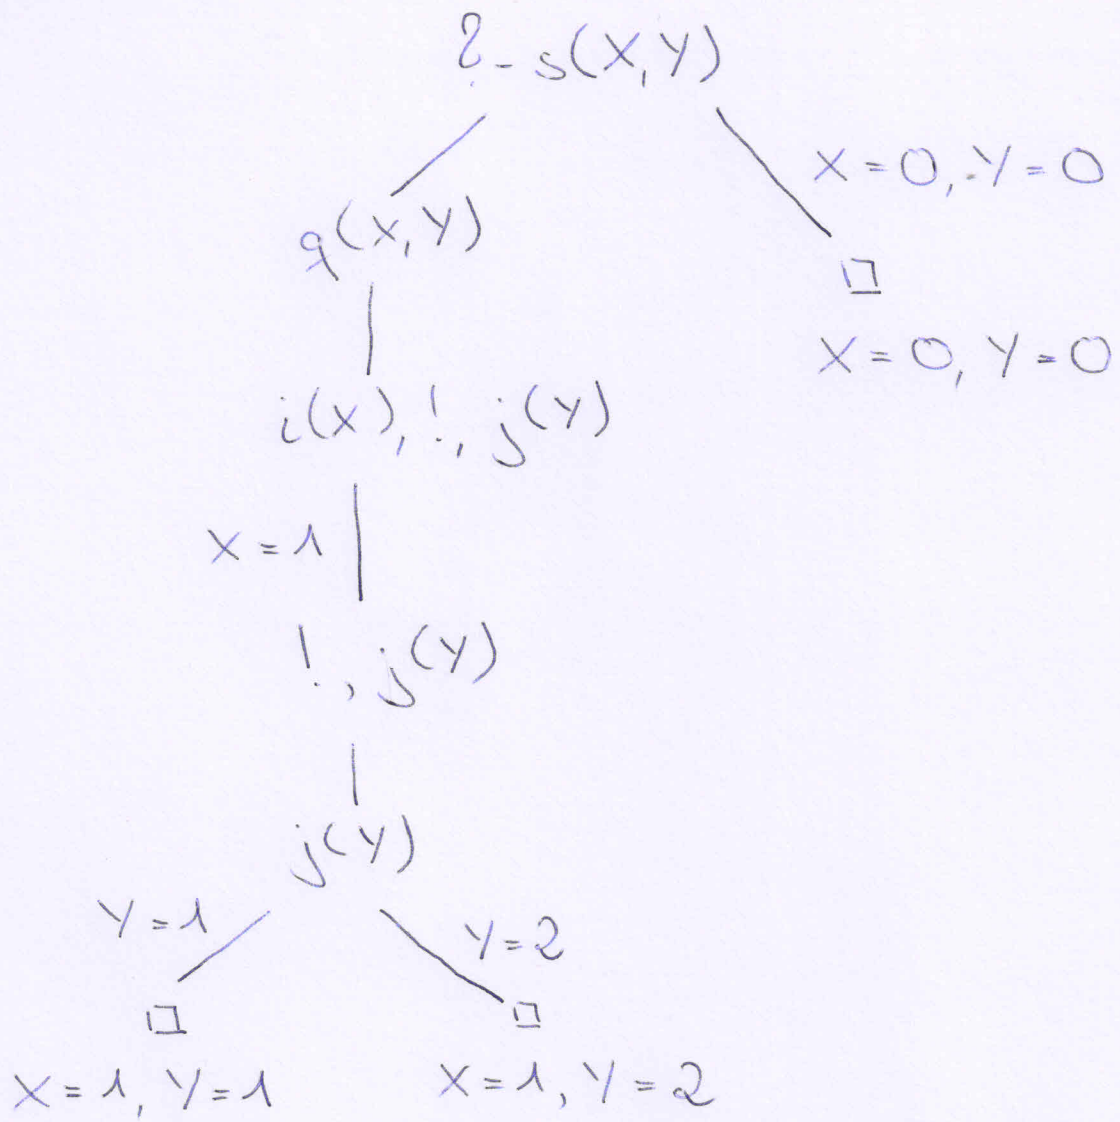 ?- s(X,Y)
X=0, Y=0
q(X,Y)
X=0, Y=0
i(X), !, j(Y)
X=1
!, j(Y)
j(Y)
Y=1
Y=2
X=1, Y=1
X=1, Y=2